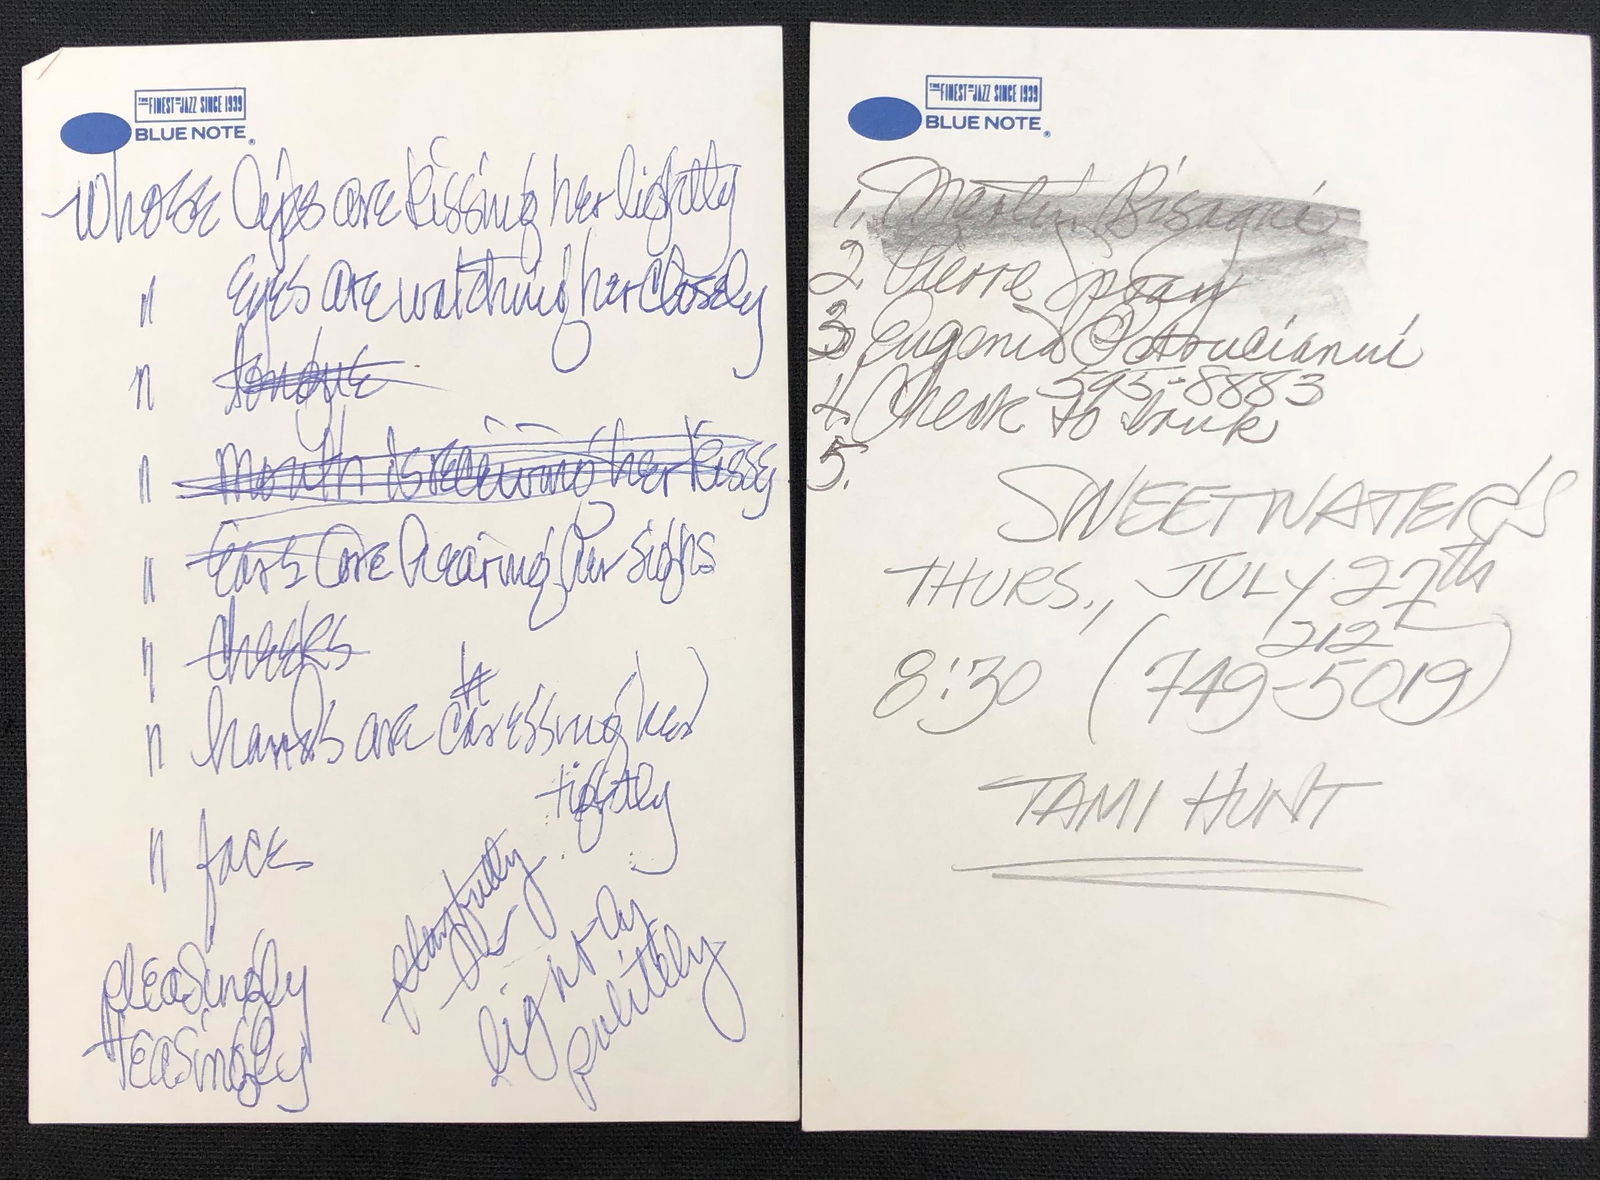 THE FINEST IN JAZZ SINCE 1939
BLUE NOTE®
Whose lips are kissing her lightly
" Eyes are watching her closely
" tongue
" mouth is receiving her kisses
" Ears are hearing her sighs
" cheeks
" hands are caressing her
tightly
" face
playfully
lightly
politely
pleasingly
teasingly
THE FINEST IN JAZZ SINCE 1939
BLUE NOTE®
1. Martin Bisagni
2. Pierre Spray
3. Eugenia
595-8883
4. Check to bruk
5.
SWEETWATER'S
THURS., JULY 27th
212
8:30 (749-5019)
TAMI HUNT